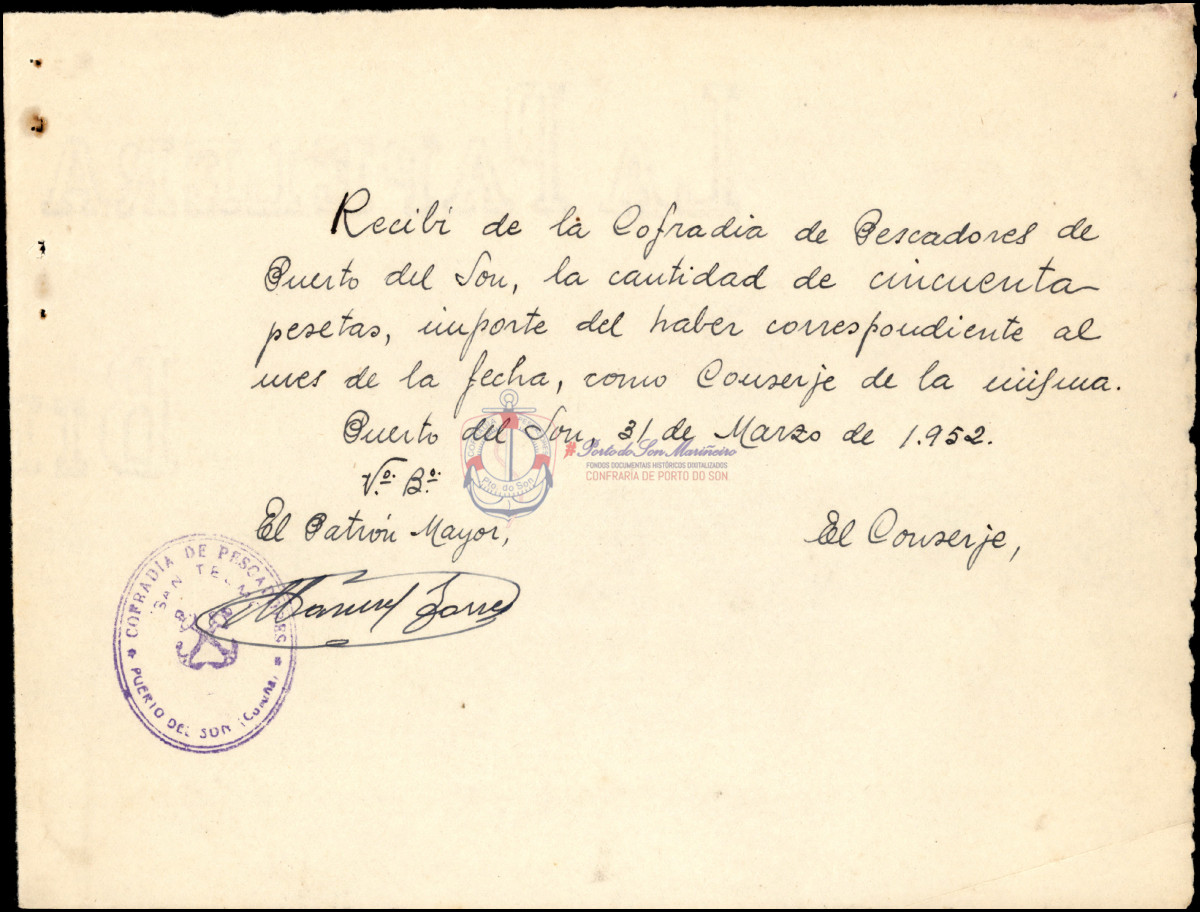 Recibí de la Cofradia de Pescadores de
Puerto del Son, la cantidad de cincuenta
pesetas, importe del haber correspondiente al
mes de la fecha, como Conserje de la misma.
Puerto del Son, 31 de Marzo de 1.952.
#Porto do Son Mariñeiro
FONDOS DOCUMENTAIS HISTÓRICOS DIGITALIZADOS
CONFRARÍA DE PORTO DO SON
Pto. do Son
Vº. Bº.
El Patrón Mayor,
El Conserje,
Manuel Torres
COFRADIA DE PESCADORES
SAN TELMO
PUERTO DEL SON (Coruña)
LA PAPELERA